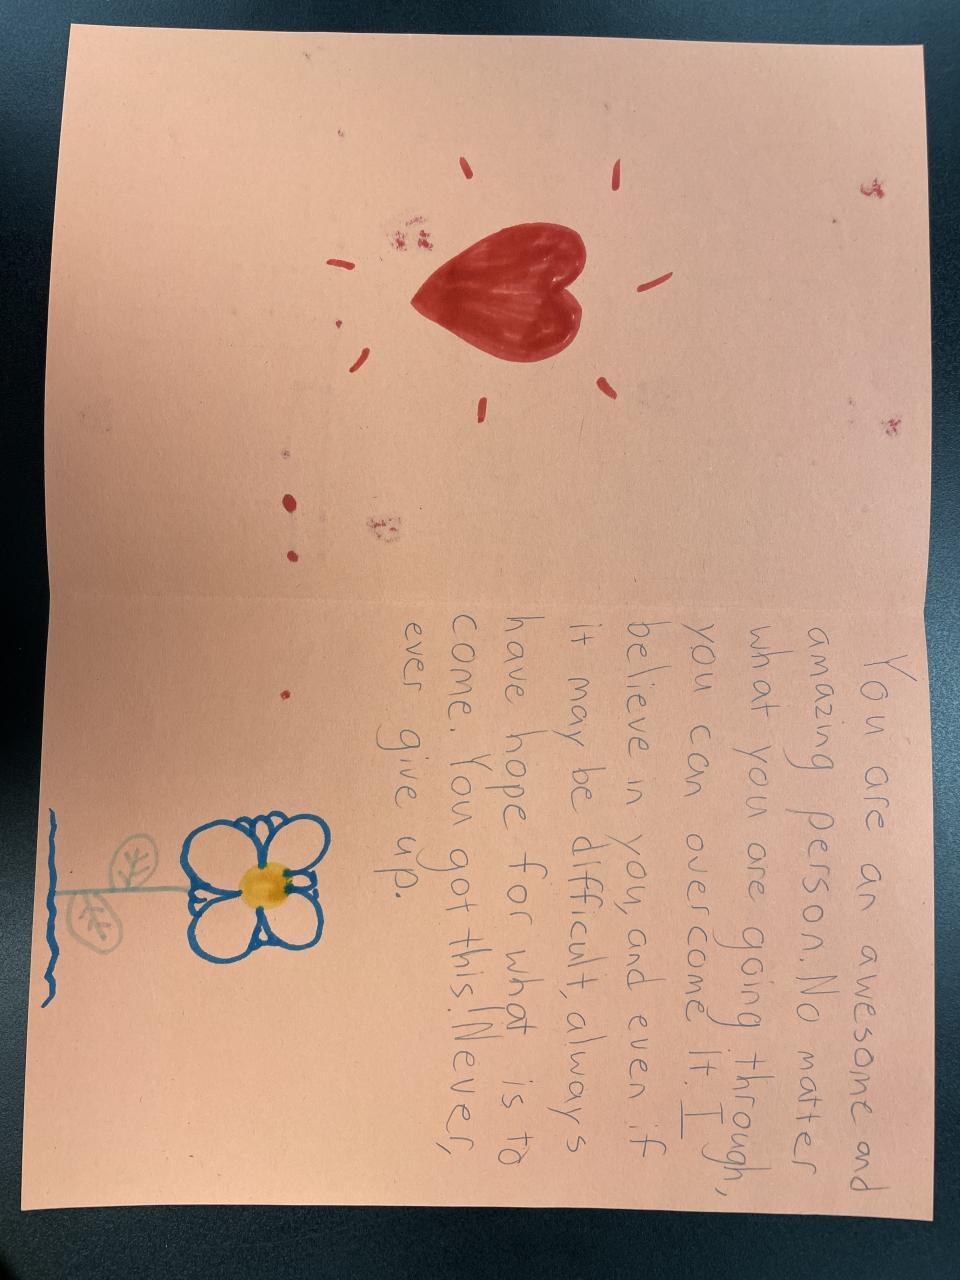 You are an awesome and
amazing person. No matter
what you are going through,
you can overcome it. I
believe in you, and even if
it may be difficult, always
have hope for what is to
come. You got this! Never,
ever give up.